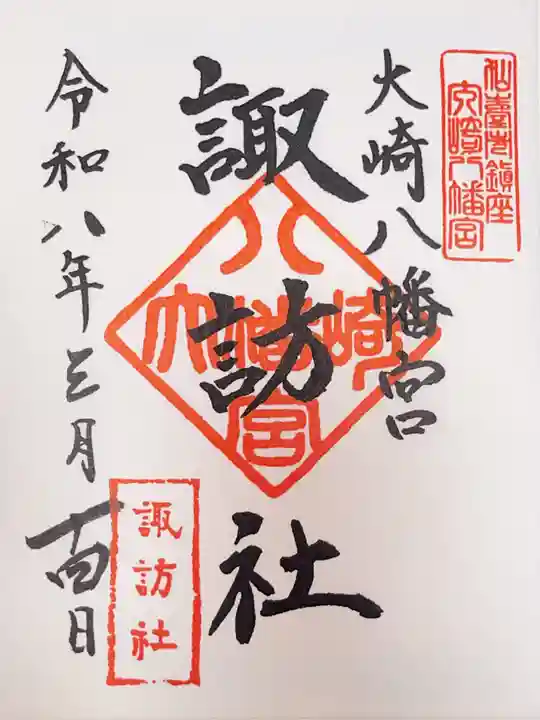 仙臺市鎮座
大崎八幡宮
大崎八幡宮
諏訪社
大崎八幡宮
令和八年三月 日
諏訪社